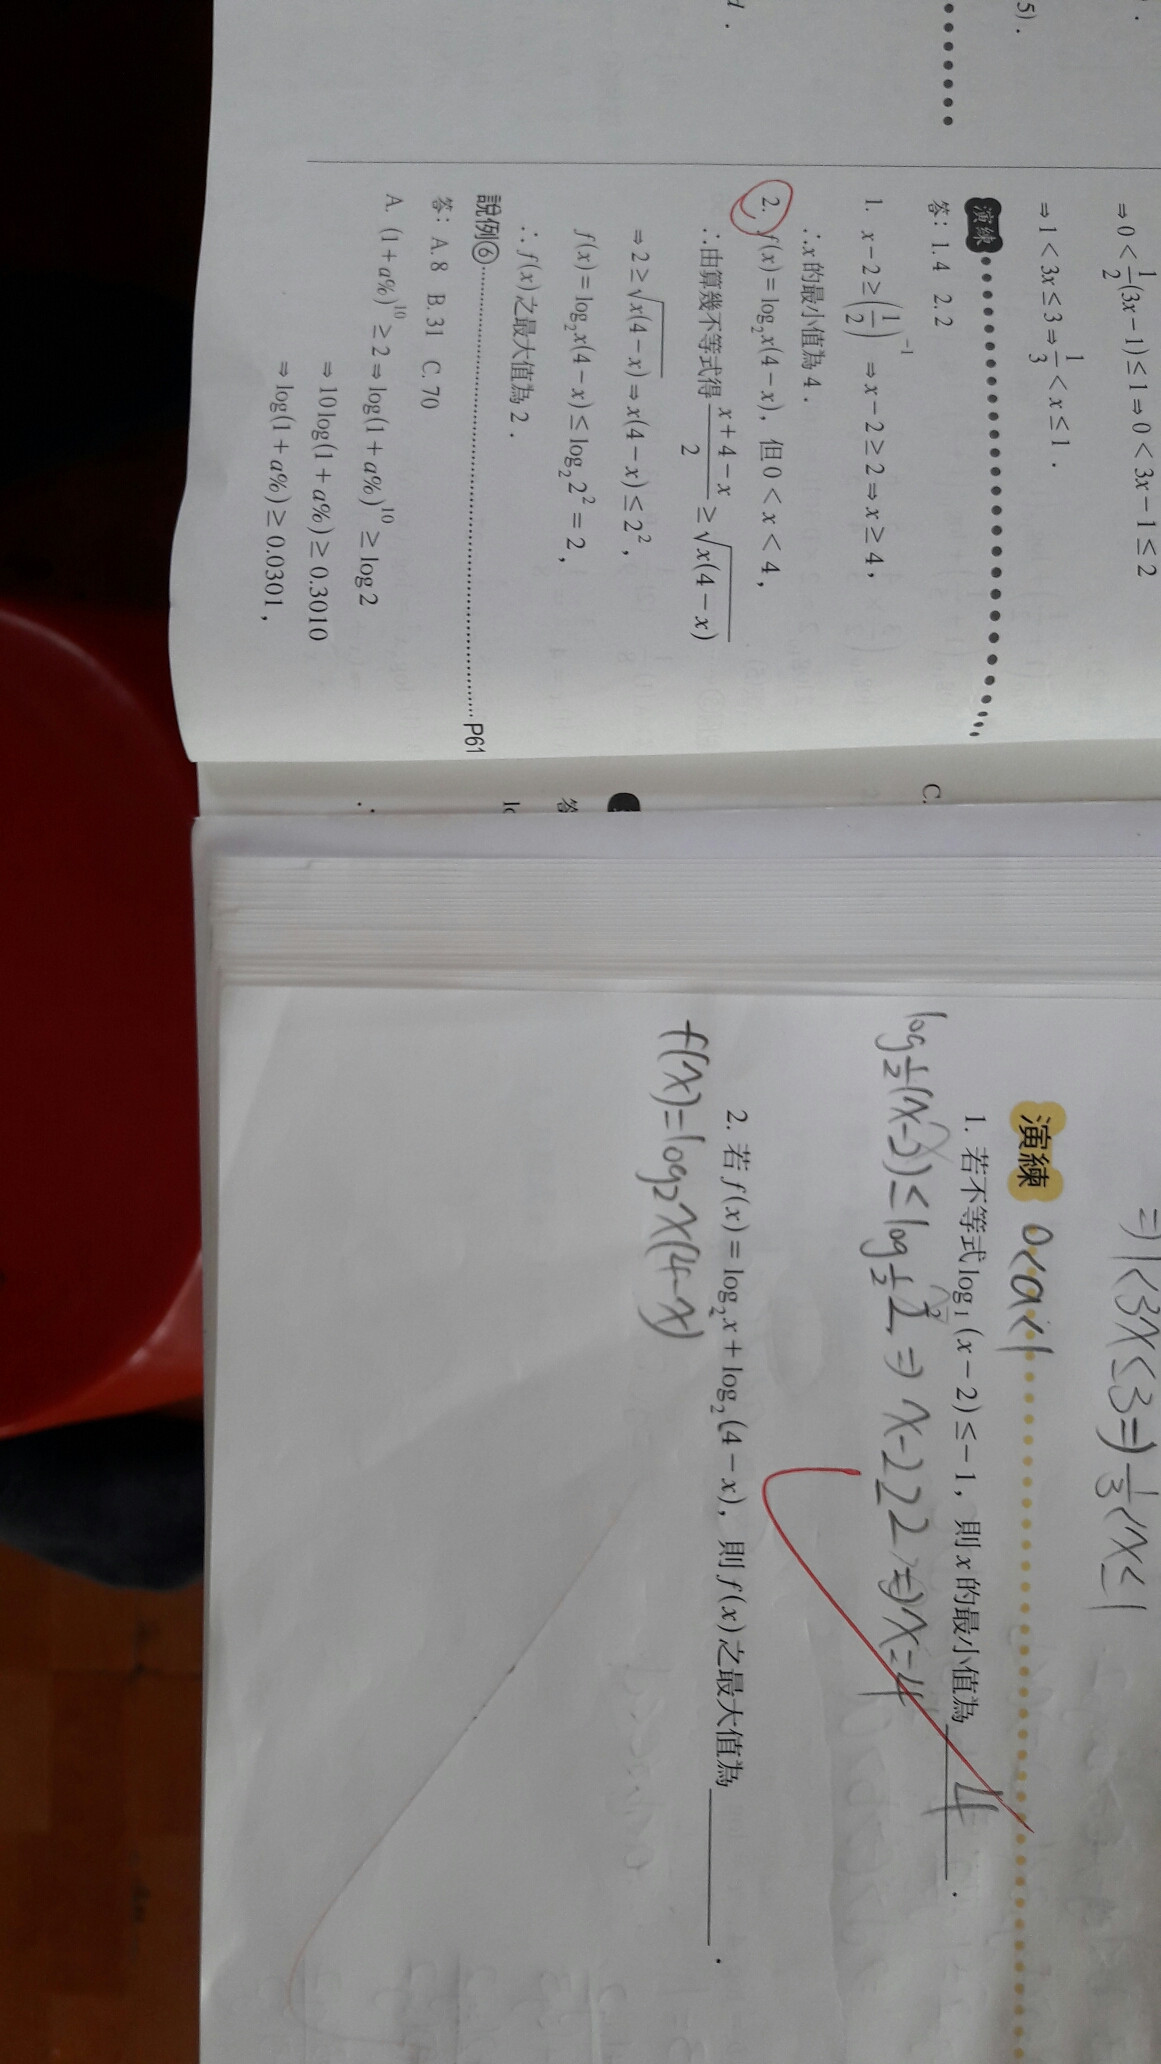 5).
⇒0<1/2(3x−1)≤1⇒0<3x−1≤2
⇒1<3x≤3⇒1/3<x≤1.
演練
答：1. 4 2. 2
1. x−2≥(1/2)^−1 ⇒x−2≥2⇒x≥4，
∴x的最小值為4.
2. f(x)=log₂x(4−x)，但0<x<4，
∴由算幾不等式得 (x+4−x)/2 ≥√(x(4−x))
⇒2≥√(x(4−x))⇒x(4−x)≤2²，
f(x)=log₂x(4−x)≤log₂2²=2，
∴f(x)之最大值為2.
說例⑥ P61
答：A. 8 B. 31 C. 70
A. (1+a%)^10≥2⇒log(1+a%)^10≥log2
⇒10log(1+a%)≥0.3010
⇒log(1+a%)≥0.0301，
C.
答
⇒1<3x≤3⇒1/3<x≤1
演練 0<a<1
1. 若不等式log_1/2(x−2)≤−1，則x的最小值為 4 .
log_1/2(x−2)≤log_1/2 2 ⇒ x−2≥2 ⇒x=4
2. 若f(x)=log₂x+log₂(4−x)，則f(x)之最大值為 .
f(x)=log₂x(4−x)